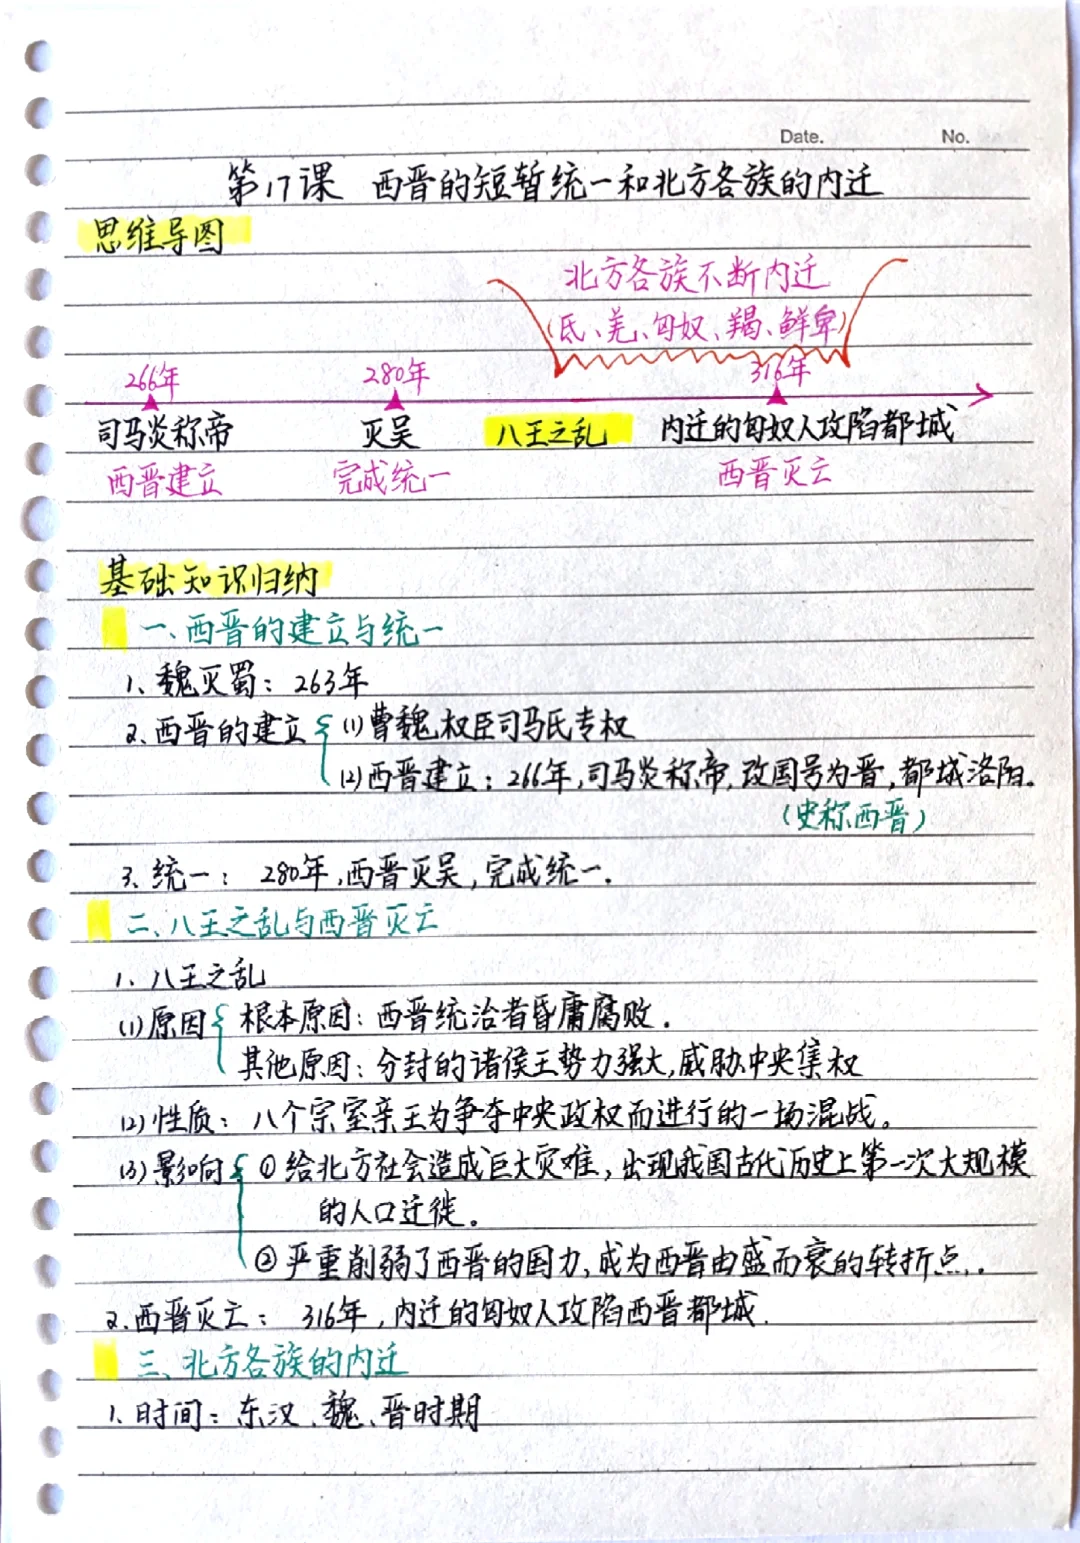 Date. No.
第17课 西晋的短暂统一和北方各族的内迁
思维导图
北方各族不断内迁
(氐、羌、匈奴、羯、鲜卑)
266年 280年 316年
司马炎称帝 灭吴 八王之乱 内迁的匈奴人攻陷都城
西晋建立 完成统一 西晋灭亡
基础知识归纳
一、西晋的建立与统一
1、魏灭蜀：263年
2、西晋的建立 (1)曹魏权臣司马氏专权
(2)西晋建立：266年，司马炎称帝，改国号为晋，都城洛阳。
(史称西晋)
3、统一：280年，西晋灭吴，完成统一.
二、八王之乱与西晋灭亡
1、八王之乱
(1)原因 根本原因：西晋统治者昏庸腐败.
其他原因：分封的诸侯王势力强大，威胁中央集权
(2)性质：八个宗室亲王为争夺中央政权而进行的一场混战。
(3)影响 ①给北方社会造成巨大灾难，出现我国古代历史上第一次大规模
的人口迁徙。
②严重削弱了西晋的国力，成为西晋由盛而衰的转折点.
2.西晋灭亡：316年，内迁的匈奴人攻陷西晋都城.
三、北方各族的内迁
1、时间：东汉、魏、晋时期